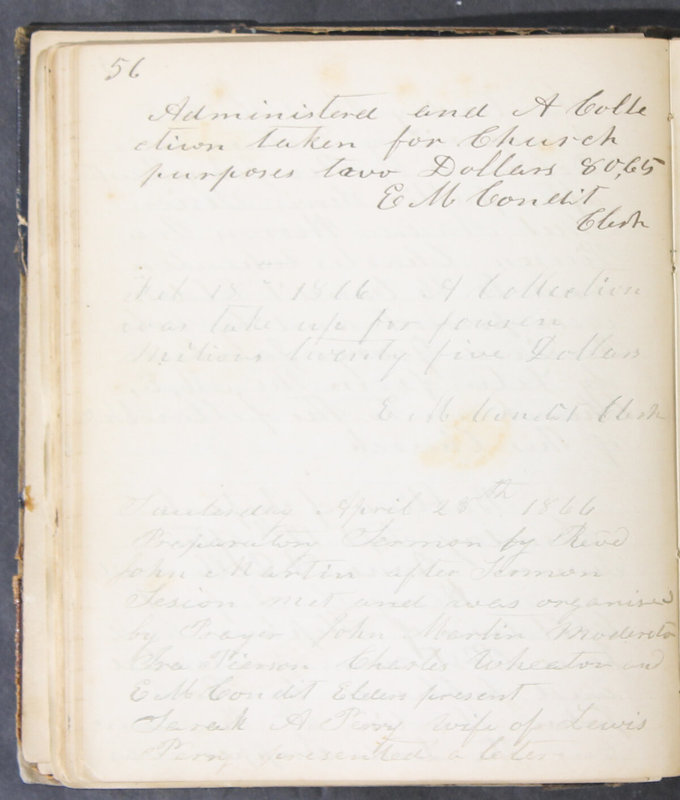 56
Administerd and A Colle
ction taken for Church
purposes two Dollars 80,65
E M Condit
Clerk
Feb 18th 1866 A Collection
was take up for fouren
Mitions twenty five Dollars
E M Condit Clerk
Sauterday April 28th 1866
Preparatory Sermon by Revd
John Martin after Sermon
Sesion met and was organised
by Prayer John Martin Moderator
Ira Pierson Charles Wheaton and
E M Condit Elders present
Sarah A Perry wife of Lewis
Perry presented a leter